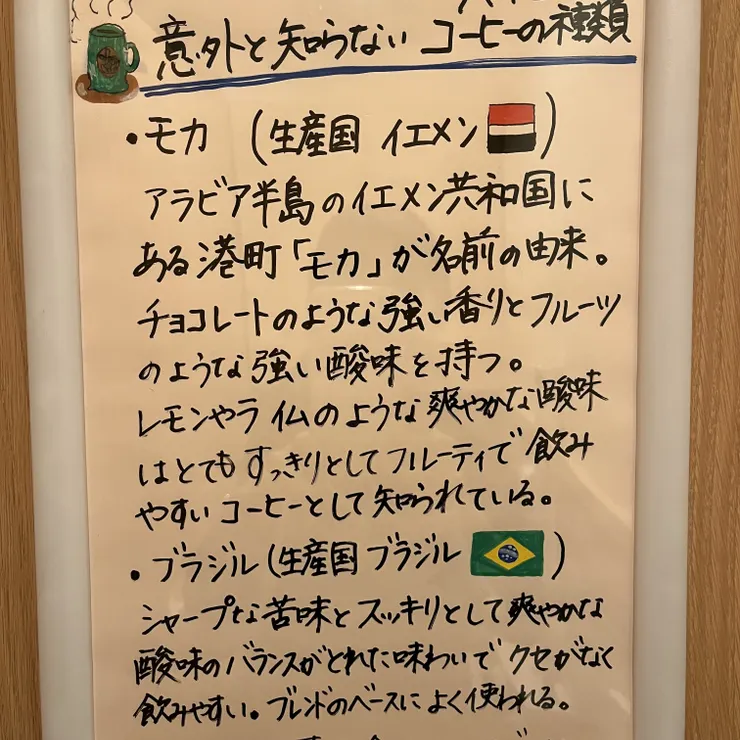 意外と知らない コーヒーの種類
・モカ (生産国 イエメン)
アラビア半島のイエメン共和国に
ある港町「モカ」が名前の由来。
チョコレートのような強い香りとフルーツ
のような強い酸味を持つ。
レモンやライムのような爽やかな酸味
はとてもすっきりとしてフルーティで飲み
やすいコーヒーとして知られている。
・ブラジル (生産国 ブラジル)
シャープな苦味とスッキリとして爽やかな
酸味のバランスがとれた味わいでクセがなく
飲みやすい。ブレンドのベースによく使われる。